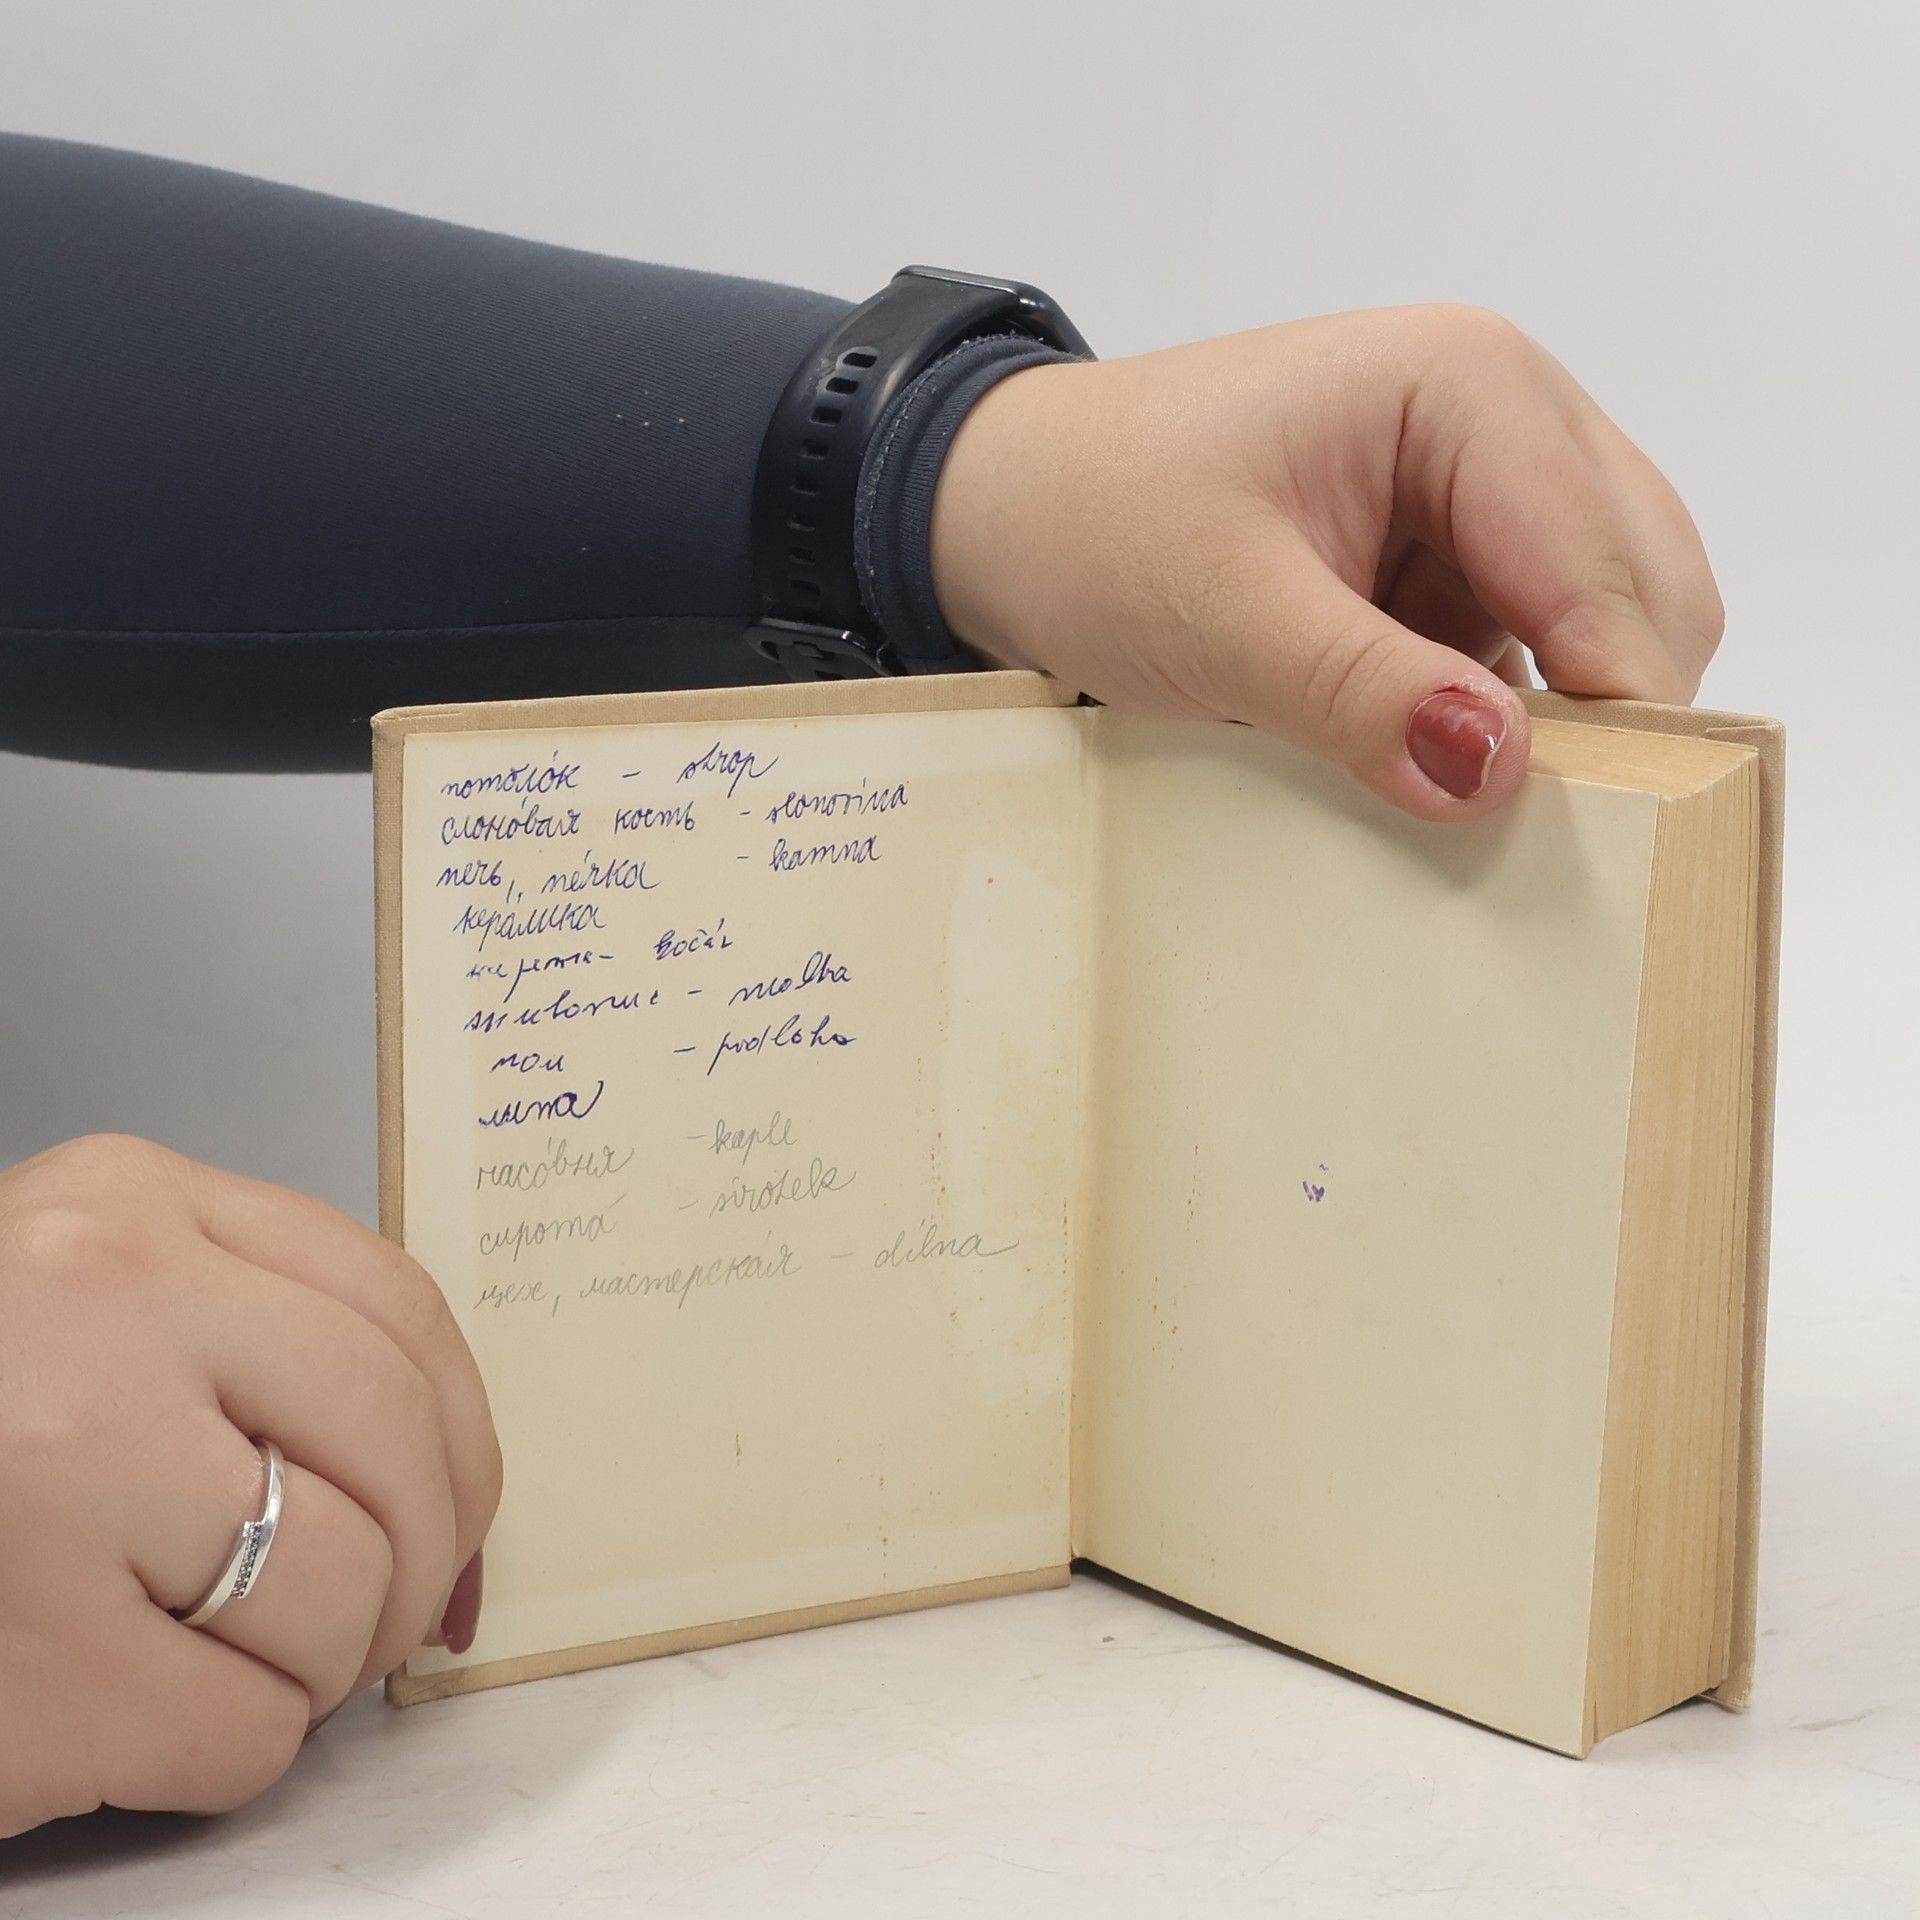 потоло́к – strop
слоно́вая кость – slonovina
печь, пе́чка – kamna
кера́мика
карета – kočár
– modla
пол – podloha
липа
часо́вня – kaple
сирота́ – sirotek
цех, мастерска́я – dílna